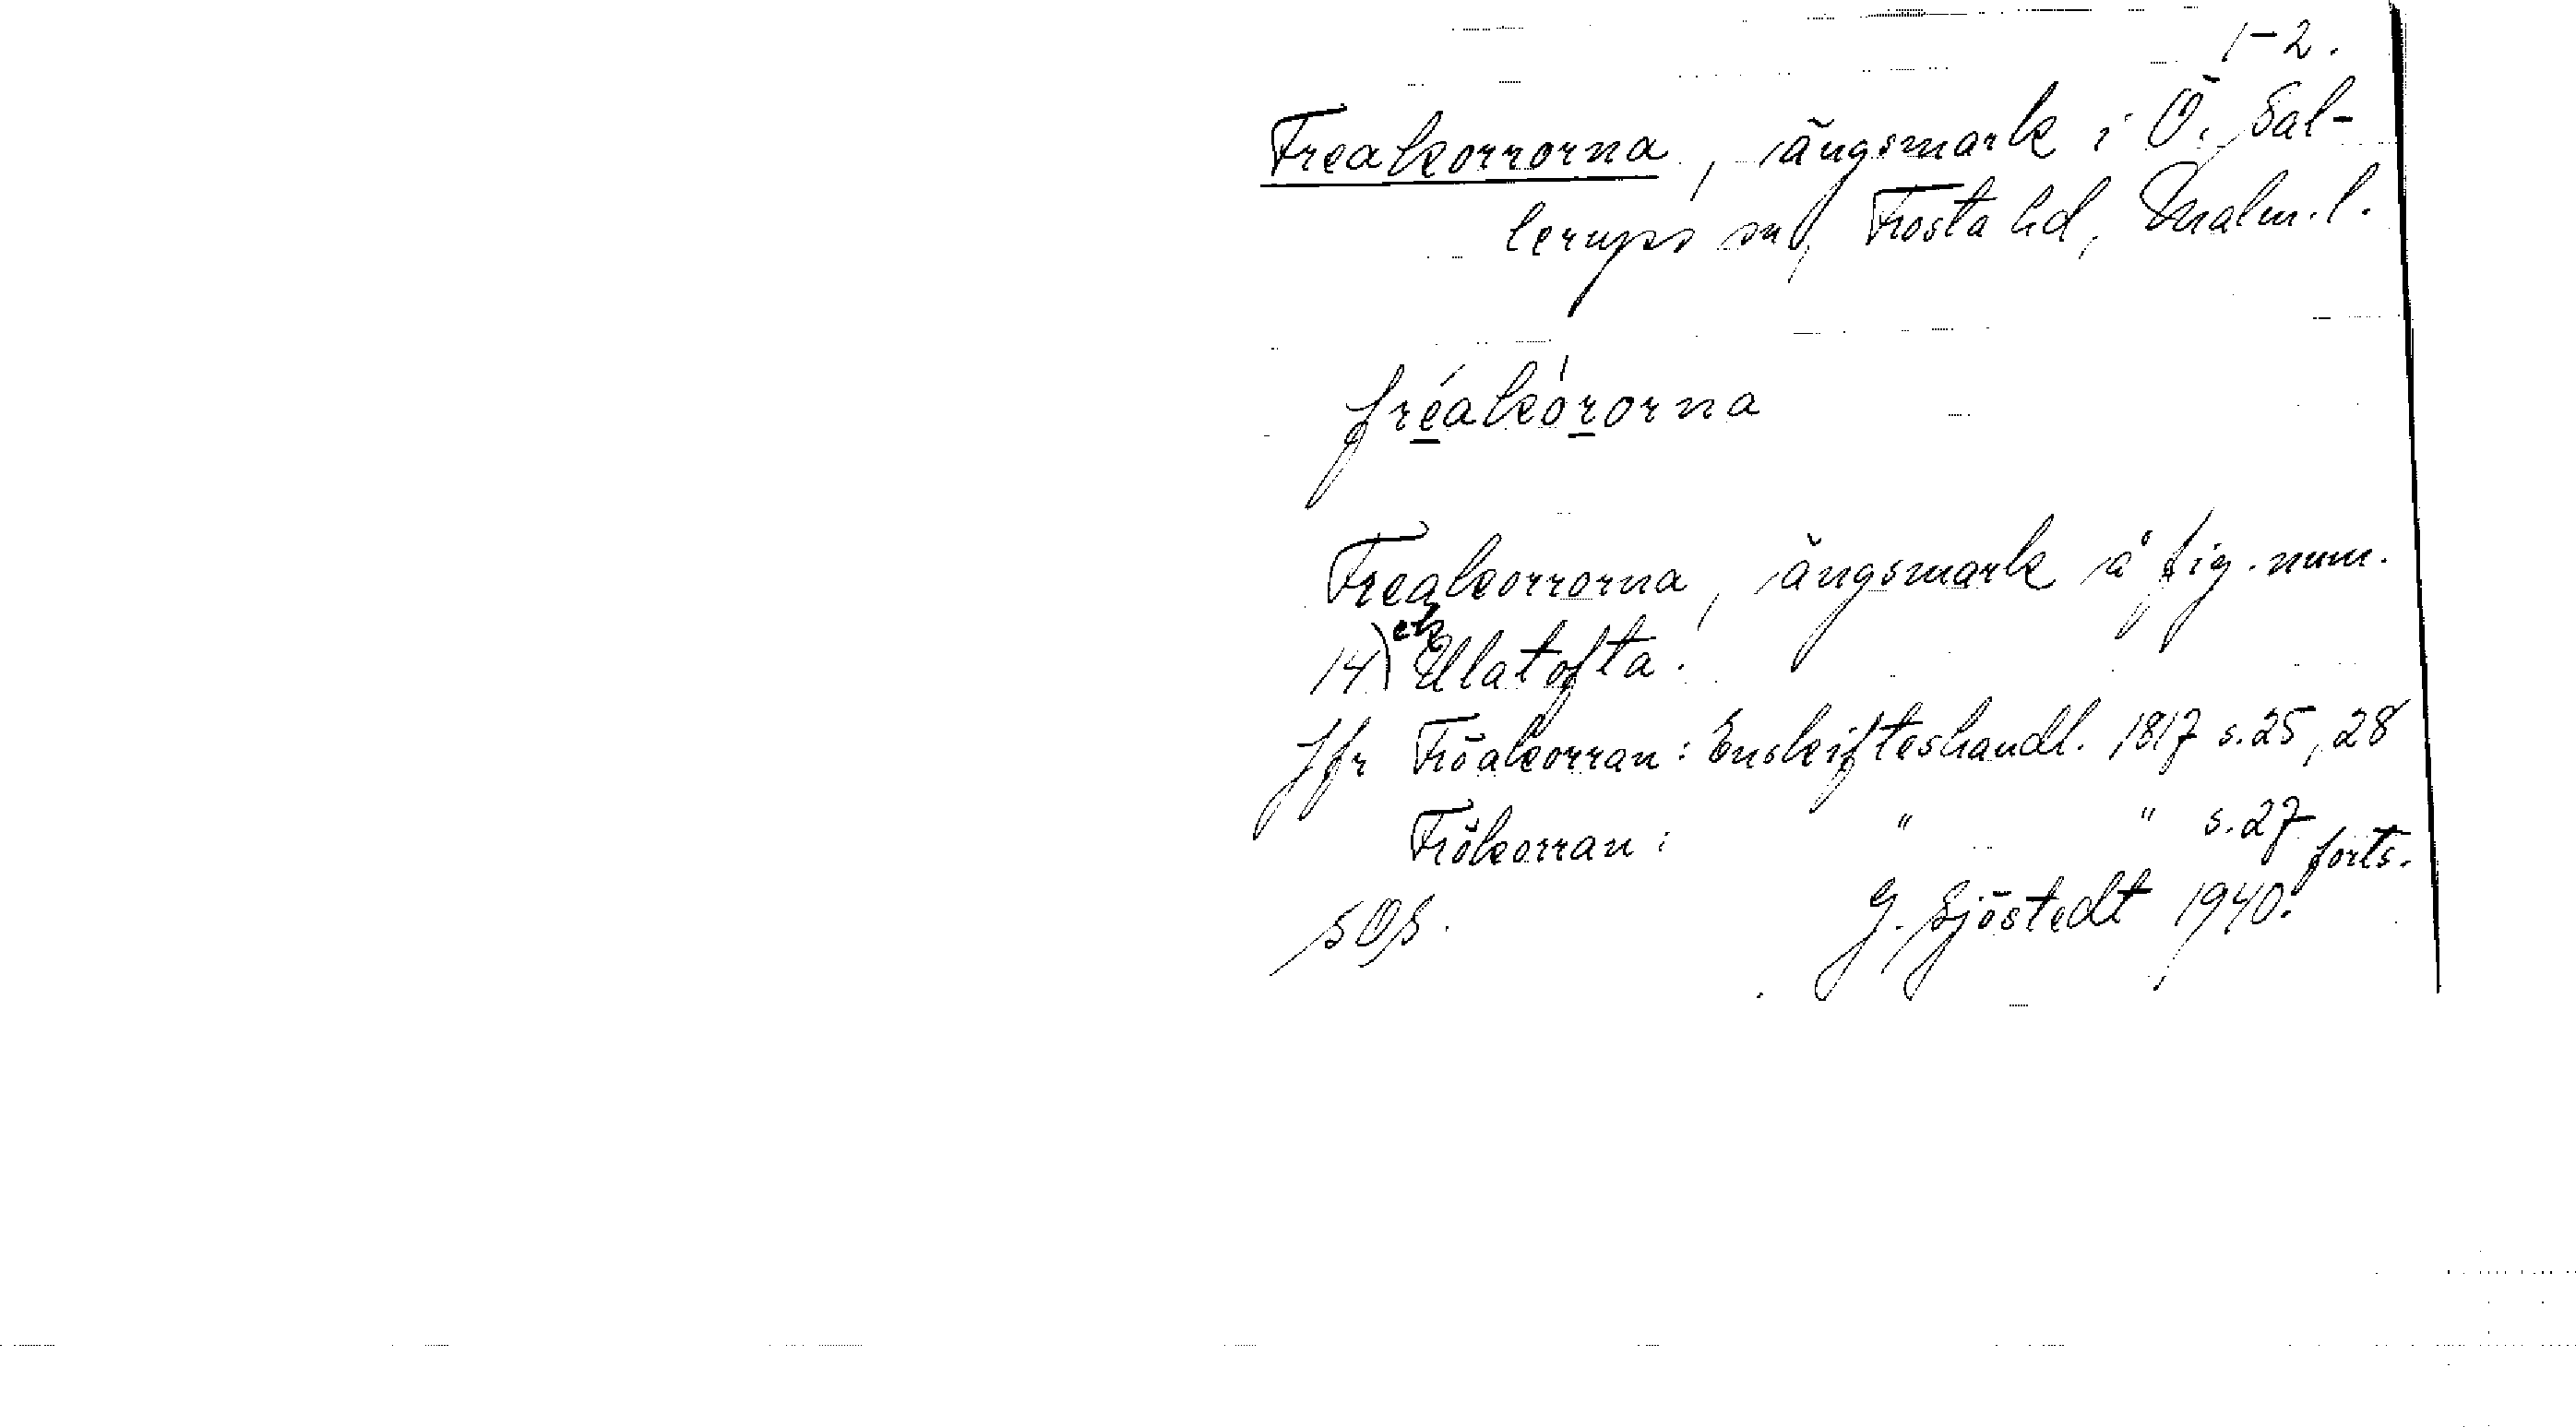 1-2.
Freakorrorna, ängsmark i Ö. Sal-
lerups sn, Frosta hd, Malm. l.
fréakórorna
Freakorrorna, ängsmark å fig. num.
14) ek Ullatofta.
Jfr Fröakorran: Enskifteshandl. 1817 s. 25, 28
Frökorran: " " s. 27
forts.
SOS. G. Sjöstedt 1940.